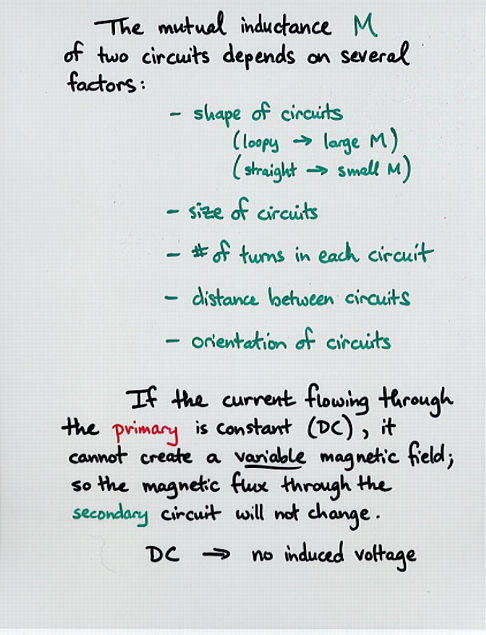 The mutual inductance M
of two circuits depends on several
factors:
- shape of circuits
(loopy → large M)
(straight → small M)
- size of circuits
- # of turns in each circuit
- distance between circuits
- orientation of circuits
If the current flowing through
the primary is constant (DC), it
cannot create a variable magnetic field;
so the magnetic flux through the
secondary circuit will not change.
DC → no induced voltage